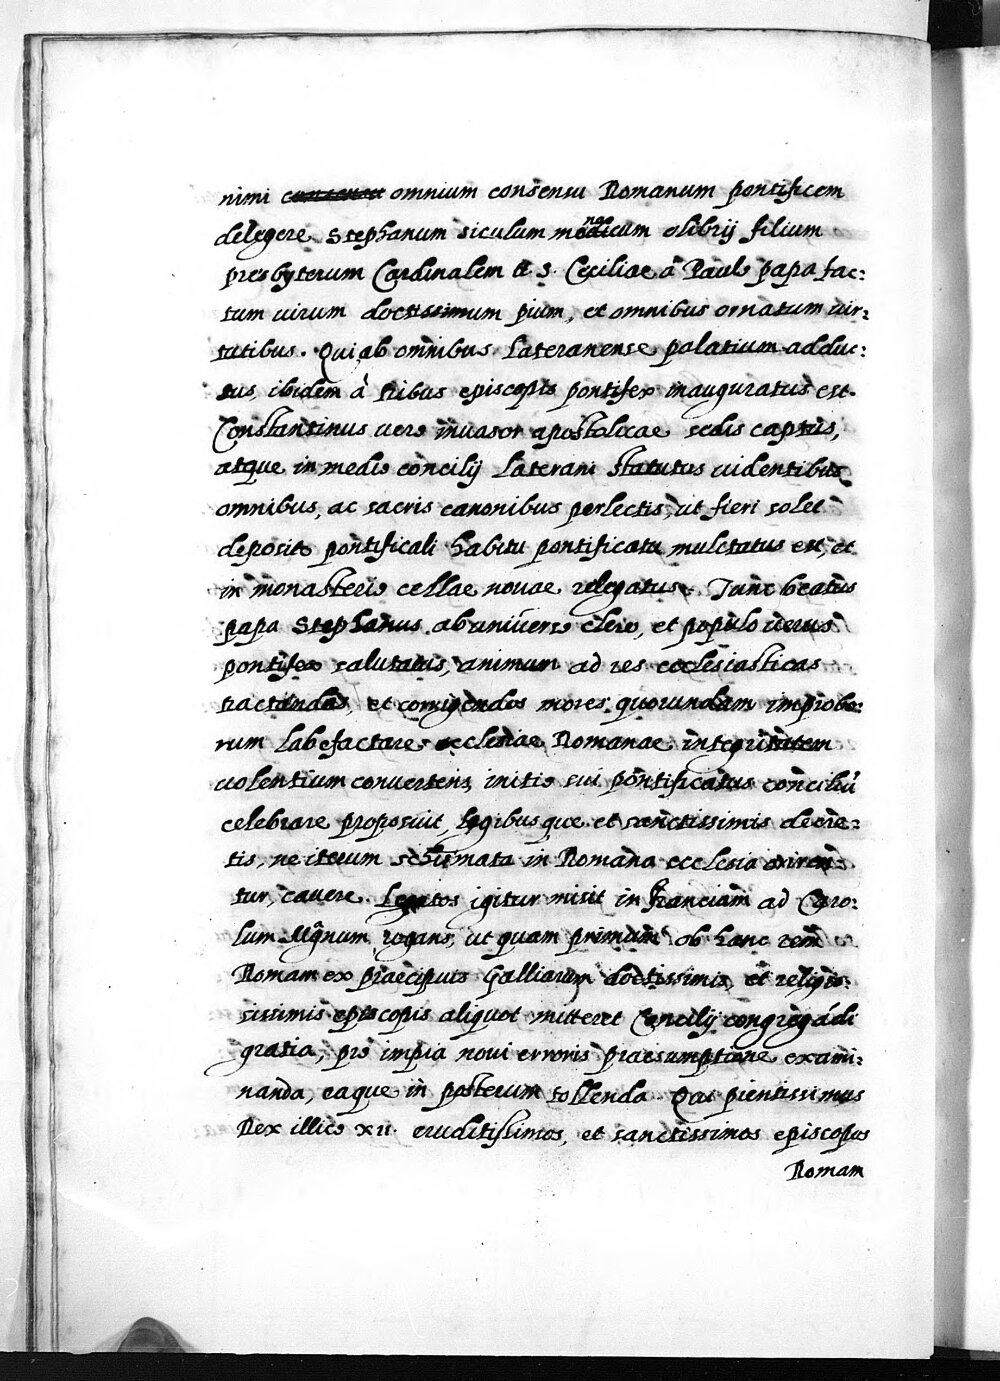 nimi omnium consensu Romanum pontificem
delegere Stephanum siculum monacum olibrij filium
presbyterum Cardinalem tt. S. Ceciliae à Paulo papa fac:
tum uirum doctissimum pium, et omnibus ornatum uir:
tutibus. Qui ab omnibus Lateranense palatium adduc:
tus, ibidem à tribus episcopis pontifex inauguratus est.
Constantinus uero inuasor apostolicae sedis captus,
atque in medio concilij Laterani statutus uidentibus
omnibus, ac sacris canonibus perlectis, ut fieri solet
deposito pontificali habitu pontificatu mulctatus est, et
in monasterio cellae nouae relegatus. Tunc beatus
papa Stephanus ab uniuerso clero, et populo uerus
pontifex salutatus, animum ad res ecclesiasticas
tractandas, et corrigendos mores quorundam improbo:
rum labefactare ecclesiae Romanae integritatem
uolentium conuertens, initio sui pontificatus conciliũ
celebrare proposuit, legibusque et sanctissimis decre:
tis, ne iterum schismata in Romana ecclesia oriren:
tur, cauere. Legatos igitur misit in Franciam ad Caro:
lum Mgnum rogans, ut quam primum ob hanc rem
Romam ex praecipuis Galliarum doctissimis et religio:
sissimis episcopis aliquot mitteret Concilij congregãdi
gratia, pro impia noui erroris praesumptione exami:
nanda, eaque in posterum tollenda. Qui pientissimus
Rex illico xii. eruditissimos, et sanctissimos episcopos
Romam